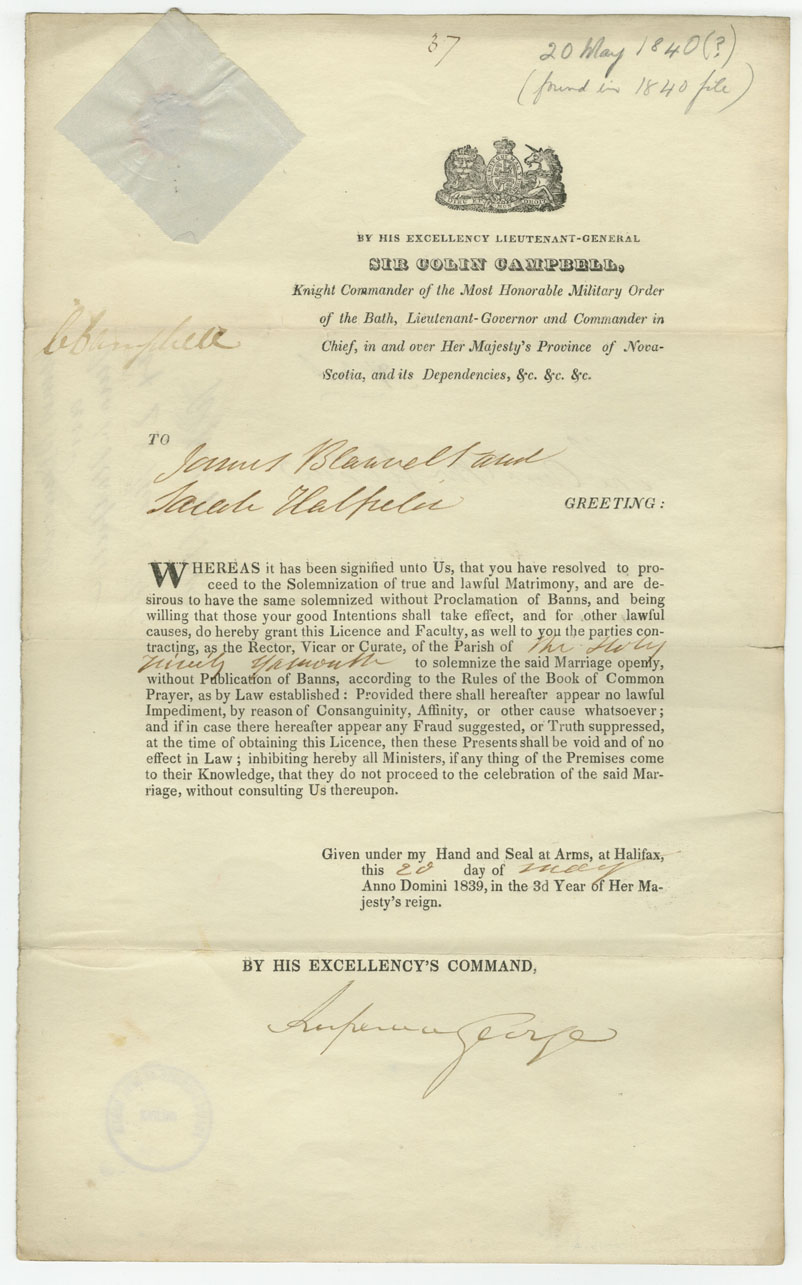 37
20 May 1840(?)
(found in 1840 file)
DIEU ET MON DROIT
BY HIS EXCELLENCY LIEUTENANT-GENERAL
SIR COLIN CAMPBELL,
Knight Commander of the Most Honorable Military Order
of the Bath, Lieutenant-Governor and Commander in
Chief, in and over Her Majesty's Province of Nova-
Scotia, and its Dependencies, &c. &c. &c.
CCampbell
TO
James Blauvelt and
Sarah Hatfield
GREETING:
WHEREAS it has been signified unto Us, that you have resolved to pro-
ceed to the Solemnization of true and lawful Matrimony, and are de-
sirous to have the same solemnized without Proclamation of Banns, and being
willing that those your good Intentions shall take effect, and for other lawful
causes, do hereby grant this Licence and Faculty, as well to you the parties con-
tracting, as the Rector, Vicar or Curate, of the Parish of The Holy
Trinity Yarmouth to solemnize the said Marriage openly,
without Publication of Banns, according to the Rules of the Book of Common
Prayer, as by Law established: Provided there shall hereafter appear no lawful
Impediment, by reason of Consanguinity, Affinity, or other cause whatsoever;
and if in case there hereafter appear any Fraud suggested, or Truth suppressed,
at the time of obtaining this Licence, then these Presents shall be void and of no
effect in Law; inhibiting hereby all Ministers, if any thing of the Premises come
to their Knowledge, that they do not proceed to the celebration of the said Mar-
riage, without consulting Us thereupon.
Given under my Hand and Seal at Arms, at Halifax,
this 20 day of May
Anno Domini 1839, in the 3d Year of Her Ma-
jesty's reign.
BY HIS EXCELLENCY'S COMMAND,
George